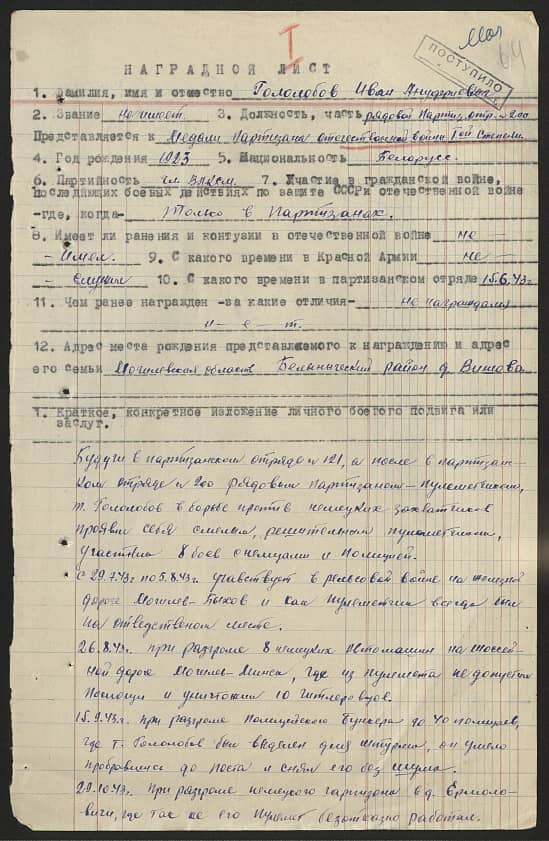 I
Моч
64
ПОСТУПИЛО
НАГРАДНОЙ ЛИСТ
1. Фамилия, имя и отчество Гололобов Иван
2. Звание не имеет. 3. Должность, часть рядовой Партиз. отр. № 200
Представляется к Медали Партизана отечественной войны Iой степени
4. Год рождения 1923 5. Национальность Белорусс.
6. Партийность чл. ВЛКСМ. 7. Участие в гражданской войне,
последующих боевых действиях по защите СССР и отечественной войне
-где, когда- Только в Партизанах.
8. Имеет ли ранения и контузии в отечественной войне не
- имел. 9. С какого времени в Красной Армии не -
- служил 10. С какого времени в партизанском отряде 15.6.43г
11. Чем ранее награжден -за какие отличия- не награждался
н - е - т.
12. Адрес места рождения представляемого к награждению и адрес
его семьи Могилевская область Белыничский район д. Вишова
1. Краткое, конкретное изложение личного боегого подвига или
заслуг.
Будучи в партизанском отряде № 121, а после в партизан-
ком отряде № 200 рядовым партизаном-пулеметчиком,
т. Гололобов в борьбе против немецких захватчиков
проявил себя смелым, решительным пулеметчиком,
участник 8 боев с немцами и полицией.
С 29.7.43г по 5.8.43г. учавствует в рельсовой войне на железной
дороге Могилев-Быхов и как пулеметчик всегда был
на отведственом месте.
26.8.43г. при разгроме 8 немецких автомашин на шоссей-
ной дороге Могилев-Минск, где из пулемета не допустил
помощи и уничтожил 10 гитлеровцев.
15.9.43г. при разгроме полицейского бункера до 40 полицаев,
где т. Гололобов был выделен для штурма, он умело
пробрався до поста и снял его без шума.
29.10.43г. При разгроме немецкого гарнизона в д. Ермоло-
вичи, где так же его пулемет безотказно работал.